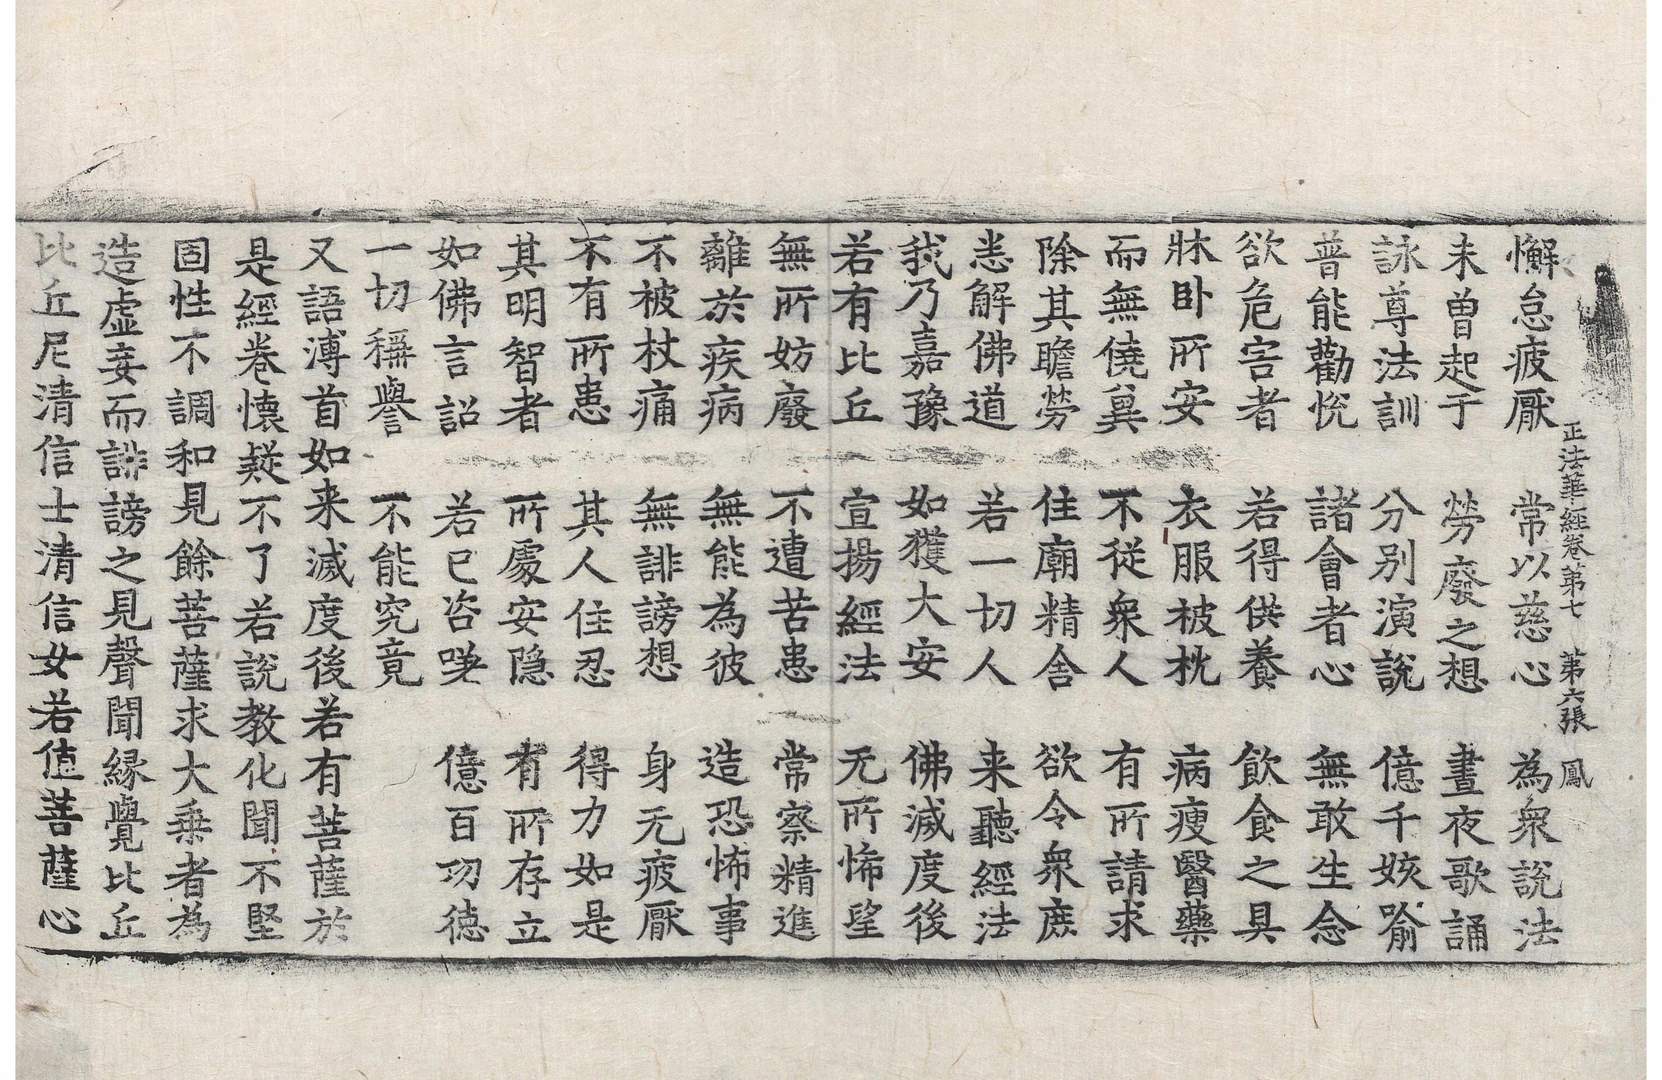 正法華經卷第七　第六張　鳳
懈怠疲厭　常以慈心　為衆說法
未曾起于　勞廢之想　晝夜歌誦
詠尊法訓　分別演說　億千姟喻
普能勸悅　諸會者心　無敢生念
欲危害者　若得供養　飲食之具
牀卧所安　衣服被枕　病瘦醫藥
而無僥兾　不從衆人　有所請求
除其瞻勞　住廟精舍　欲令衆庶
悉解佛道　若一切人　来聽經法
我乃嘉豫　如獲大安　佛滅度後
若有比丘　宣揚經法　无所怖望
無所妨廢　不遭苦患　常察精進
離於疾病　無能為彼　造恐怖事
不被杖痛　無誹謗想　身无疲厭
不有所患　其人住忍　得力如是
其明智者　所處安隐　有所存立
如佛言詔　若已咨嗟　億百功德
一切稱譽　不能究竟
又語溥首如来滅度後若有菩薩於
是經卷懷疑不了若說教化聞不堅
固性不調和見餘菩薩求大乗者為
造虛妄而誹謗之見聲聞緣覺比丘
比丘尼清信士清信女若值菩薩心